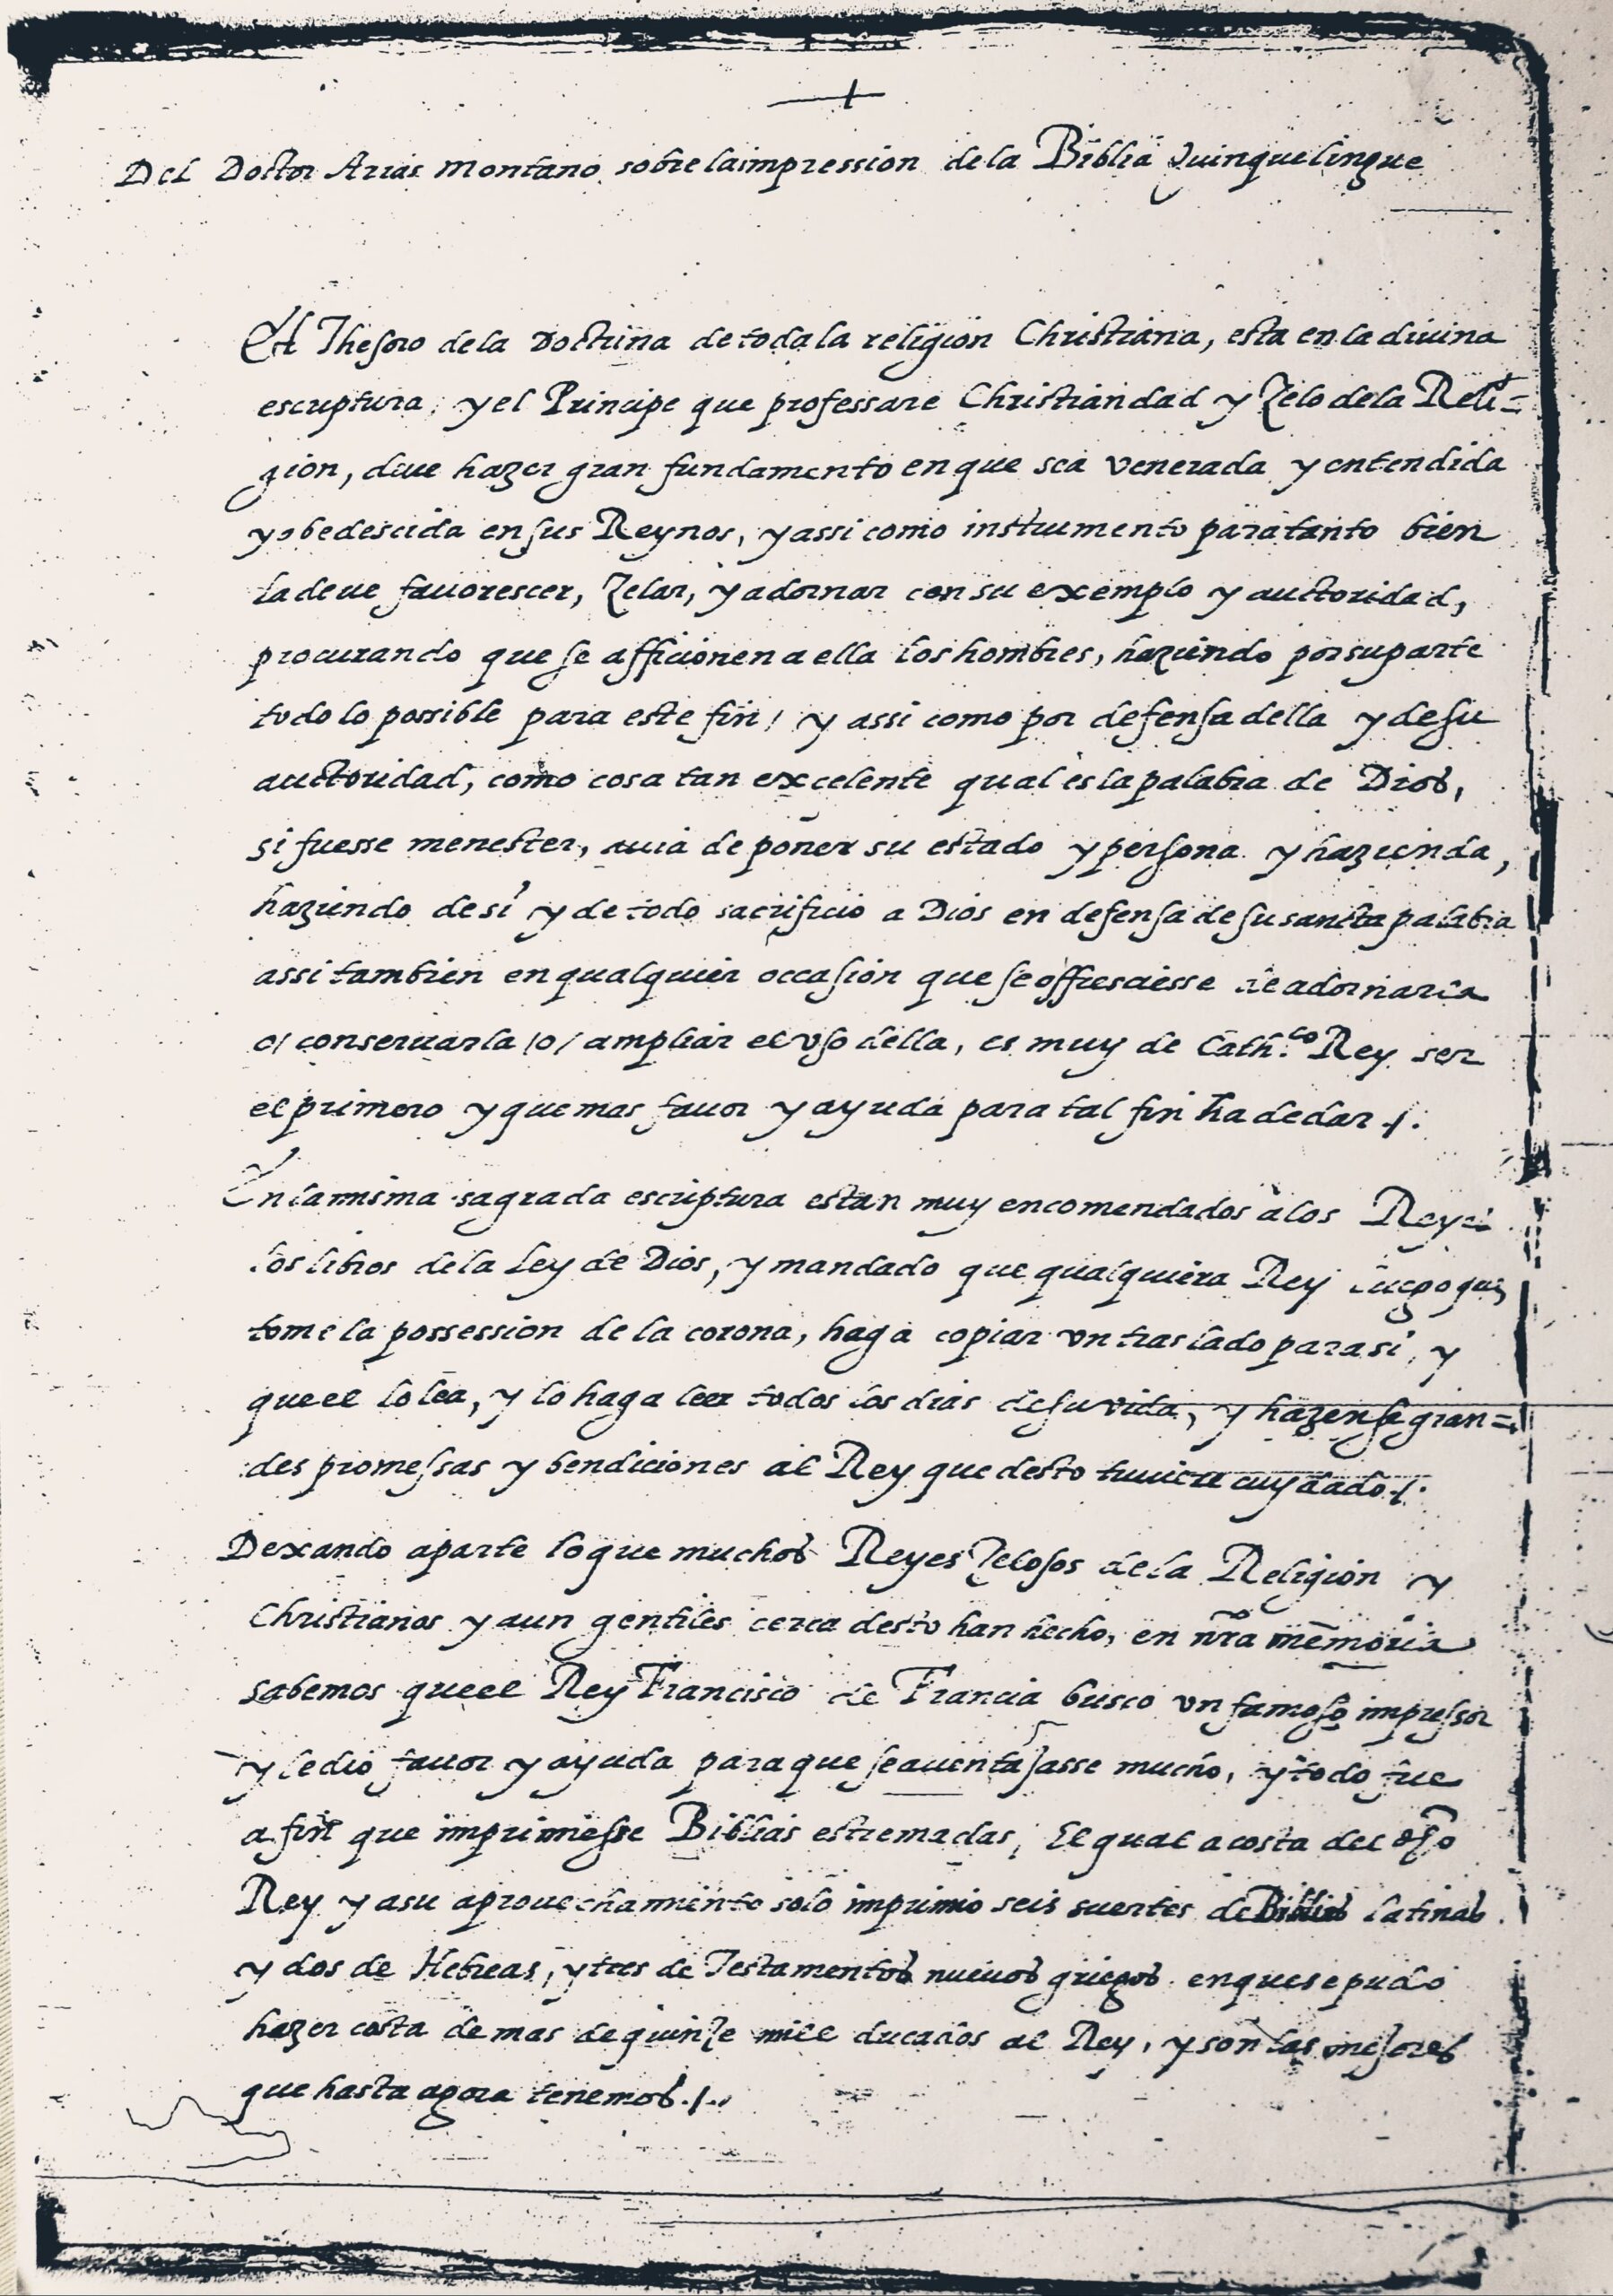 +
Del Doctor Arias Montano sobre la impression de la Biblia Quinquelingue
El Thesoro de la Doctrina de toda la religion Christiana, esta en la divina
escriptura, y el Principe que professare Christiandad y Zelo de la Reli=
gion, deue hazer gran fundamento en que sea venerada y entendida
y obedescida en sus Reynos, y assi como instrumento para tanto bien
la deue fauorescer, Zelar, y adornar con su exemplo y auctoridad,
procurando que se afficionen a ella los hombres, haziendo por su parte
todo lo possible para este fin, y assi como por defensa della y de su
auctoridad, como cosa tan excelente qual es la palabra de Dios,
si fuesse menester, auia de poner su estado y persona y hazienda,
haziendo de si y de todo sacrificio a Dios en defensa de su sancta palabra
assi tambien en qualquier occasion que se offresciesse de adornarla
o/ conseruarla /o/ ampliar el vso della, es muy de Cath.co Rey ser
el primero y que mas fauor y ayuda para tal fin ha de dar ./.
En la misma sagrada escriptura estan muy encomendados à los Reyes
los libros de la Ley de Dios, y mandado que qualquiera Rey luego que
tome la possession de la corona, haga copiar vn traslado para si, y
que el lo lea, y lo haga leer todos los dias de su vida, y hazense gran=
des promessas y bendiciones al Rey que desto tuuiere cuydado ./.
Dexando aparte lo que muchos Reyes Zelosos de la Religion y
Christianos y aun gentiles cerca desto han hecho, en nr̃a memoria
sabemos que el Rey Francisco de Francia busco vn famoso impressor
y le dio fauor y ayuda para que se auentajasse mucho, y todo fue
a fin que imprimiesse Biblias estremadas, El qual a costa del dho
Rey y a su aprouechamiento solo imprimio seis suertes de Biblias latinas
y dos de Hebreas, y tres de Testamentos nueuos griegos en que se pudo
hazer costa de mas de quinze mill ducados al Rey, y son las mejores
que hasta agora tenemos ./.